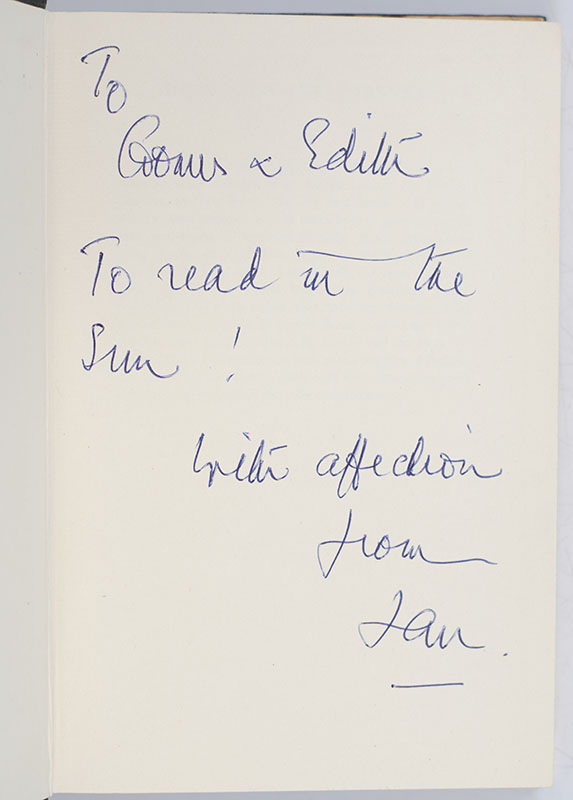 To
& Edith
To read in the
Sun !
with affection
from
Ian.